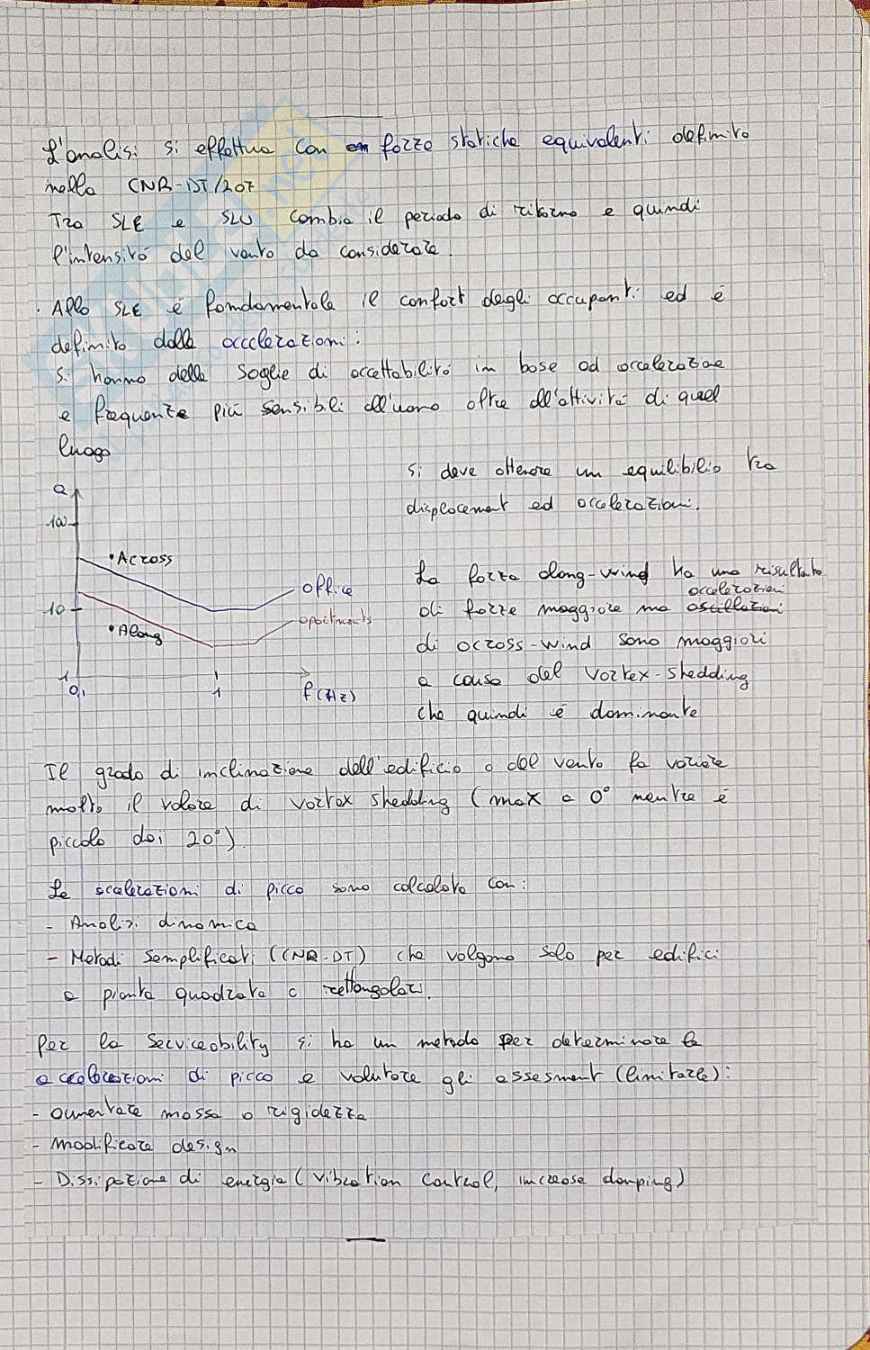 L'analisi si effettua con forze statiche equivalenti definite
nella CNR-DT/207
Tra SLE e SLU cambia il periodo di ritorno e quindi
l'intensità del vento da considerare.
· Allo SLE è fondamentale il confort degli occupanti ed è
definito dalle acccelerazioni:
Si hanno delle soglie di accettabilità in base ad accelerazione
e frequenze più sensibili all'uomo oltre all'attività di quel
luogo
Si deve ottenere un equilibilio tra
displacement ed accelerazioni.
a
100
10
1
0,1
1
f(Hz)
•Across
•Along
office
apartments
La forza along-wind ha una risultante
di forze maggiore ma accelerazioni
di across-wind sono maggiori
a causa del vortex-shedding
che quindi è dominante
Il grado di inclinazione dell'edificio o del vento fa variare
molto il valore di vortex shedding (max a 0° mentre è
piccolo dai 20°)
Le accelerazioni di picco sono calcolate con:
- Analisi dinamica
- Metodi semplificati (CNR-DT) che valgono solo per edifici
a pianta quadrata o rettangolari.
Per la Serviceability si ha un metodo per determinare le
accelerazioni di picco e valutare gli assesment (limitarle):
- aumentare massa o rigidezza
- modificare design
- Dissipazione di energia (vibration control, increase damping)